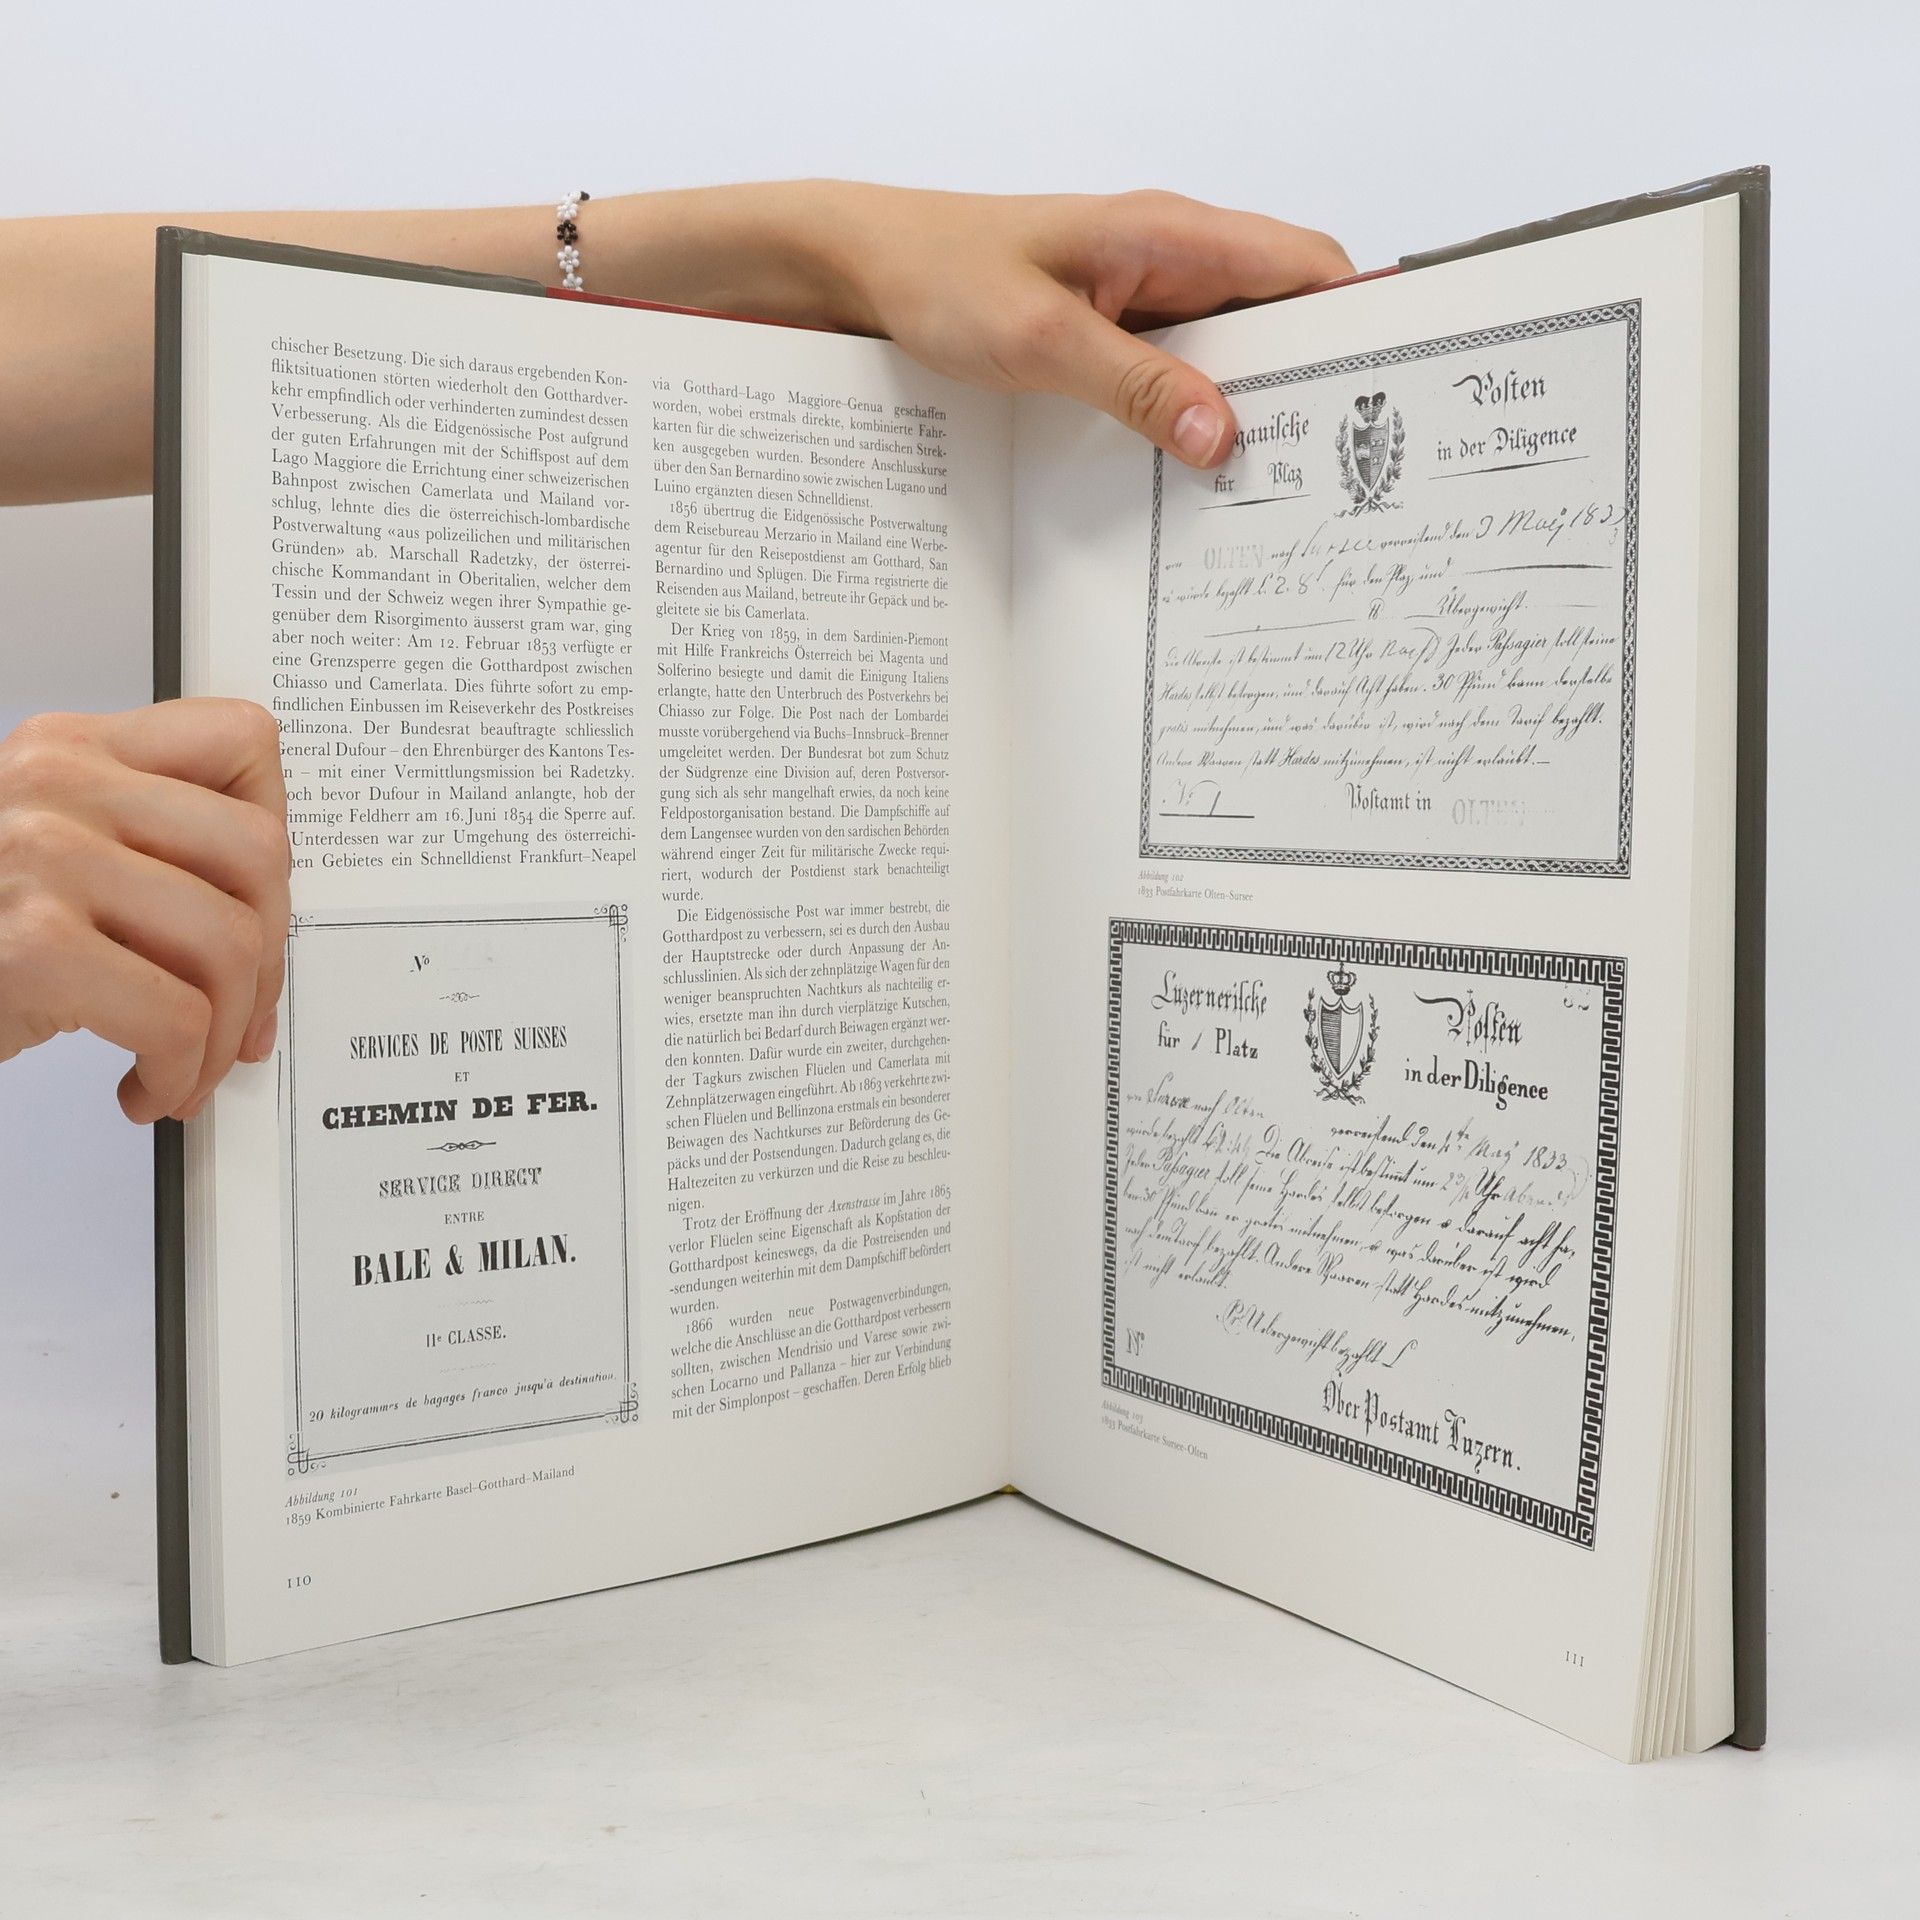 chischer Besetzung. Die sich daraus ergebenden Kon-
fliktsituationen störten wiederholt den Gotthardver-
kehr empfindlich oder verhinderten zumindest dessen
Verbesserung. Als die Eidgenössische Post aufgrund
der guten Erfahrungen mit der Schiffspost auf dem
Lago Maggiore die Errichtung einer schweizerischen
Bahnpost zwischen Camerlata und Mailand vor-
schlug, lehnte dies die österreichisch-lombardische
Postverwaltung «aus polizeilichen und militärischen
Gründen» ab. Marschall Radetzky, der österrei-
chische Kommandant in Oberitalien, welcher dem
Tessin und der Schweiz wegen ihrer Sympathie ge-
genüber dem Risorgimento äusserst gram war, ging
aber noch weiter: Am 12. Februar 1853 verfügte er
eine Grenzsperre gegen die Gotthardpost zwischen
Chiasso und Camerlata. Dies führte sofort zu emp-
findlichen Einbussen im Reiseverkehr des Postkreises
Bellinzona. Der Bundesrat beauftragte schliesslich
General Dufour – den Ehrenbürger des Kantons Tes-
n – mit einer Vermittlungsmission bei Radetzky.
och bevor Dufour in Mailand anlangte, hob der
rimmige Feldherr am 16. Juni 1854 die Sperre auf.
Unterdessen war zur Umgehung des österreichi-
hen Gebietes ein Schnelldienst Frankfurt–Neapel
No
SERVICES DE POSTE SUISSES
ET
CHEMIN DE FER.
SERVICE DIRECT
ENTRE
BALE & MILAN.
IIe CLASSE.
20 kilogrammes de bagages franco jusqu'à destination.
Abbildung 101
1859 Kombinierte Fahrkarte Basel–Gotthard–Mailand
110
via Gotthard–Lago Maggiore–Genua geschaffen
worden, wobei erstmals direkte, kombinierte Fahr-
karten für die schweizerischen und sardischen Strek-
ken ausgegeben wurden. Besondere Anschlusskurse
über den San Bernardino sowie zwischen Lugano und
Luino ergänzten diesen Schnelldienst.
1856 übertrug die Eidgenössische Postverwaltung
dem Reisebureau Merzario in Mailand eine Werbe-
agentur für den Reisepostdienst am Gotthard, San
Bernardino und Splügen. Die Firma registrierte die
Reisenden aus Mailand, betreute ihr Gepäck und be-
gleitete sie bis Camerlata.
Der Krieg von 1859, in dem Sardinien-Piemont
mit Hilfe Frankreichs Österreich bei Magenta und
Solferino besiegte und damit die Einigung Italiens
erlangte, hatte den Unterbruch des Postverkehrs bei
Chiasso zur Folge. Die Post nach der Lombardei
musste vorübergehend via Buchs–Innsbruck–Brenner
umgeleitet werden. Der Bundesrat bot zum Schutz
der Südgrenze eine Division auf, deren Postversor-
gung sich als sehr mangelhaft erwies, da noch keine
Feldpostorganisation bestand. Die Dampfschiffe auf
dem Langensee wurden von den sardischen Behörden
während einger Zeit für militärische Zwecke requi-
riert, wodurch der Postdienst stark benachteiligt
wurde.
Die Eidgenössische Post war immer bestrebt, die
Gotthardpost zu verbessern, sei es durch den Ausbau
der Hauptstrecke oder durch Anpassung der An-
schlusslinien. Als sich der zehnplätzige Wagen für den
weniger beanspruchten Nachtkurs als nachteilig er-
wies, ersetzte man ihn durch vierplätzige Kutschen,
die natürlich bei Bedarf durch Beiwagen ergänzt wer-
den konnten. Dafür wurde ein zweiter, durchgehen-
der Tagkurs zwischen Flüelen und Camerlata mit
Zehnplätzerwagen eingeführt. Ab 1863 verkehrte zwi-
schen Flüelen und Bellinzona erstmals ein besonderer
Beiwagen des Nachtkurses zur Beförderung des Ge-
päcks und der Postsendungen. Dadurch gelang es, die
Haltezeiten zu verkürzen und die Reise zu beschleu-
nigen.
Trotz der Eröffnung der Axenstrasse im Jahre 1865
verlor Flüelen seine Eigenschaft als Kopfstation der
Gotthardpost keineswegs, da die Postreisenden und
-sendungen weiterhin mit dem Dampfschiff befördert
wurden.
1866 wurden neue Postwagenverbindungen,
welche die Anschlüsse an die Gotthardpost verbessern
sollten, zwischen Mendrisio und Varese sowie zwi-
schen Locarno und Pallanza – hier zur Verbindung
mit der Simplonpost – geschaffen. Deren Erfolg blieb
gauische Posten
für Plaz in der Diligence
OLTEN nach Sursee verreisend den 3 May 1833
wurde bezahlt L. 2. 8 für den Plaz und
Übergewicht.
Die Abreise ist bestimmt um 12 Uhr Jeder Passagier soll seine
Hardes selbst besorgen, und darauf Acht haben. 30 Pfund kann derselbe
gratis mitnehmen, und was darüber ist, wird nach dem Tarif bezahlt.
Andere Waaren statt Hardes mitzunehmen, ist nicht erlaubt.—
No 1 Postamt in OLTEN
Abbildung 102
1833 Postfahrkarte Olten-Sursee
Luzernerische Posten
für 1 Platz in der Diligence
von Sursee nach Olten verreisend den May 1833
wurde bezahlt Die Abreise ist bestimmt um Uhr Abends
Jeder Passagier soll seine Hardes selbst besorgen u darauf acht ha-
ben 30 Pfund kan er gratis mitnehmen, u was darüber ist wird
nach dem Tarif bezahlt. Andere Waaren statt Hardes mitzunehmen,
ist nicht erlaubt.
Uebergewicht bezahlt
No
Ober Postamt Luzern.
Abbildung 103
1833 Postfahrkarte Sursee-Olten
111